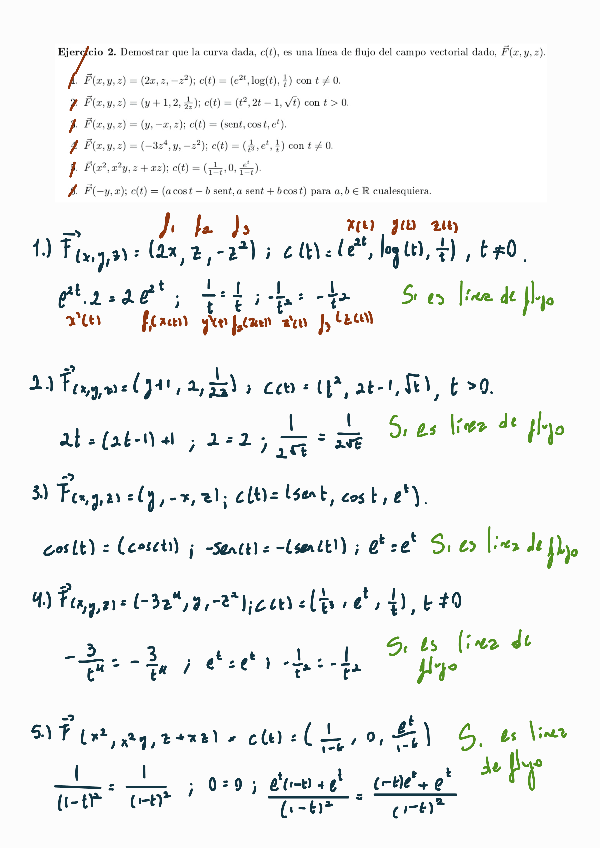 Ejercicio 2. Demostrar que la curva dada, c(t), es una línea de flujo del campo vectorial dado, F⃗(x, y, z).
1. F⃗(x, y, z) = (2x, z, −z²); c(t) = (e²ᵗ, log(t), 1/t) con t ≠ 0.
2. F⃗(x, y, z) = (y + 1, 2, 1/2z); c(t) = (t², 2t − 1, √t) con t > 0.
3. F⃗(x, y, z) = (y, −x, z); c(t) = (sent, cos t, eᵗ).
4. F⃗(x, y, z) = (−3z⁴, y, −z²); c(t) = (1/t³, eᵗ, 1/t) con t ≠ 0.
5. F⃗(x², x²y, z + xz); c(t) = (1/(1−t), 0, eᵗ/(1−t)).
6. F⃗(−y, x); c(t) = (a cos t − b sent, a sent + b cos t) para a, b ∈ ℝ cualesquiera.
f₁ f₂ f₃ x(t) y(t) z(t)
1.) F⃗(x,y,z) = (2x, z, −z²) ; c(t) = (e²ᵗ, log(t), 1/t) , t ≠ 0.
e²ᵗ·2 = 2e²ᵗ ; 1/t = 1/t ; −1/t² = −1/t² Si es linea de flujo
x'(t) f₁(x(t)) y'(t) f₂(z(t)) z'(t) f₃(z(t))
2.) F⃗(x,y,z) = (y+1, 2, 1/2z) ; c(t) = (t², 2t−1, √t), t > 0.
2t = (2t−1)+1 ; 2 = 2 ; 1/2√t = 1/2√t Si es linea de flujo
3.) F⃗(x,y,z) = (y, −x, z) ; c(t) = (sen t, cos t, eᵗ).
cos(t) = (cos(t)) ; −sen(t) = −(sen(t)) ; eᵗ = eᵗ Si es linea de flujo
4.) F⃗(x,y,z) = (−3z⁴, y, −z²) ; c(t) = (1/t³, eᵗ, 1/t), t ≠ 0
−3/t⁴ = −3/t⁴ ; eᵗ = eᵗ ; −1/t² = −1/t² Si es linea de
flujo
5.) F⃗ (x², x²y, z+xz) = c(t) = (1/(1−t), 0, eᵗ/(1−t)) Si es linea
de flujo
1/(1−t)² = 1/(1−t)² ; 0=0 ; (eᵗ(1−t)+eᵗ)/(1−t)² = ((1−t)eᵗ+eᵗ)/(1−t)²